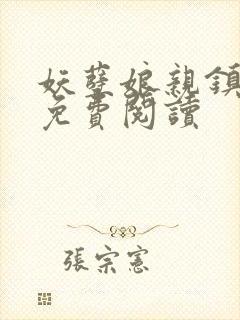 妖孽娘親鎮
免費閱讀
張宗憲